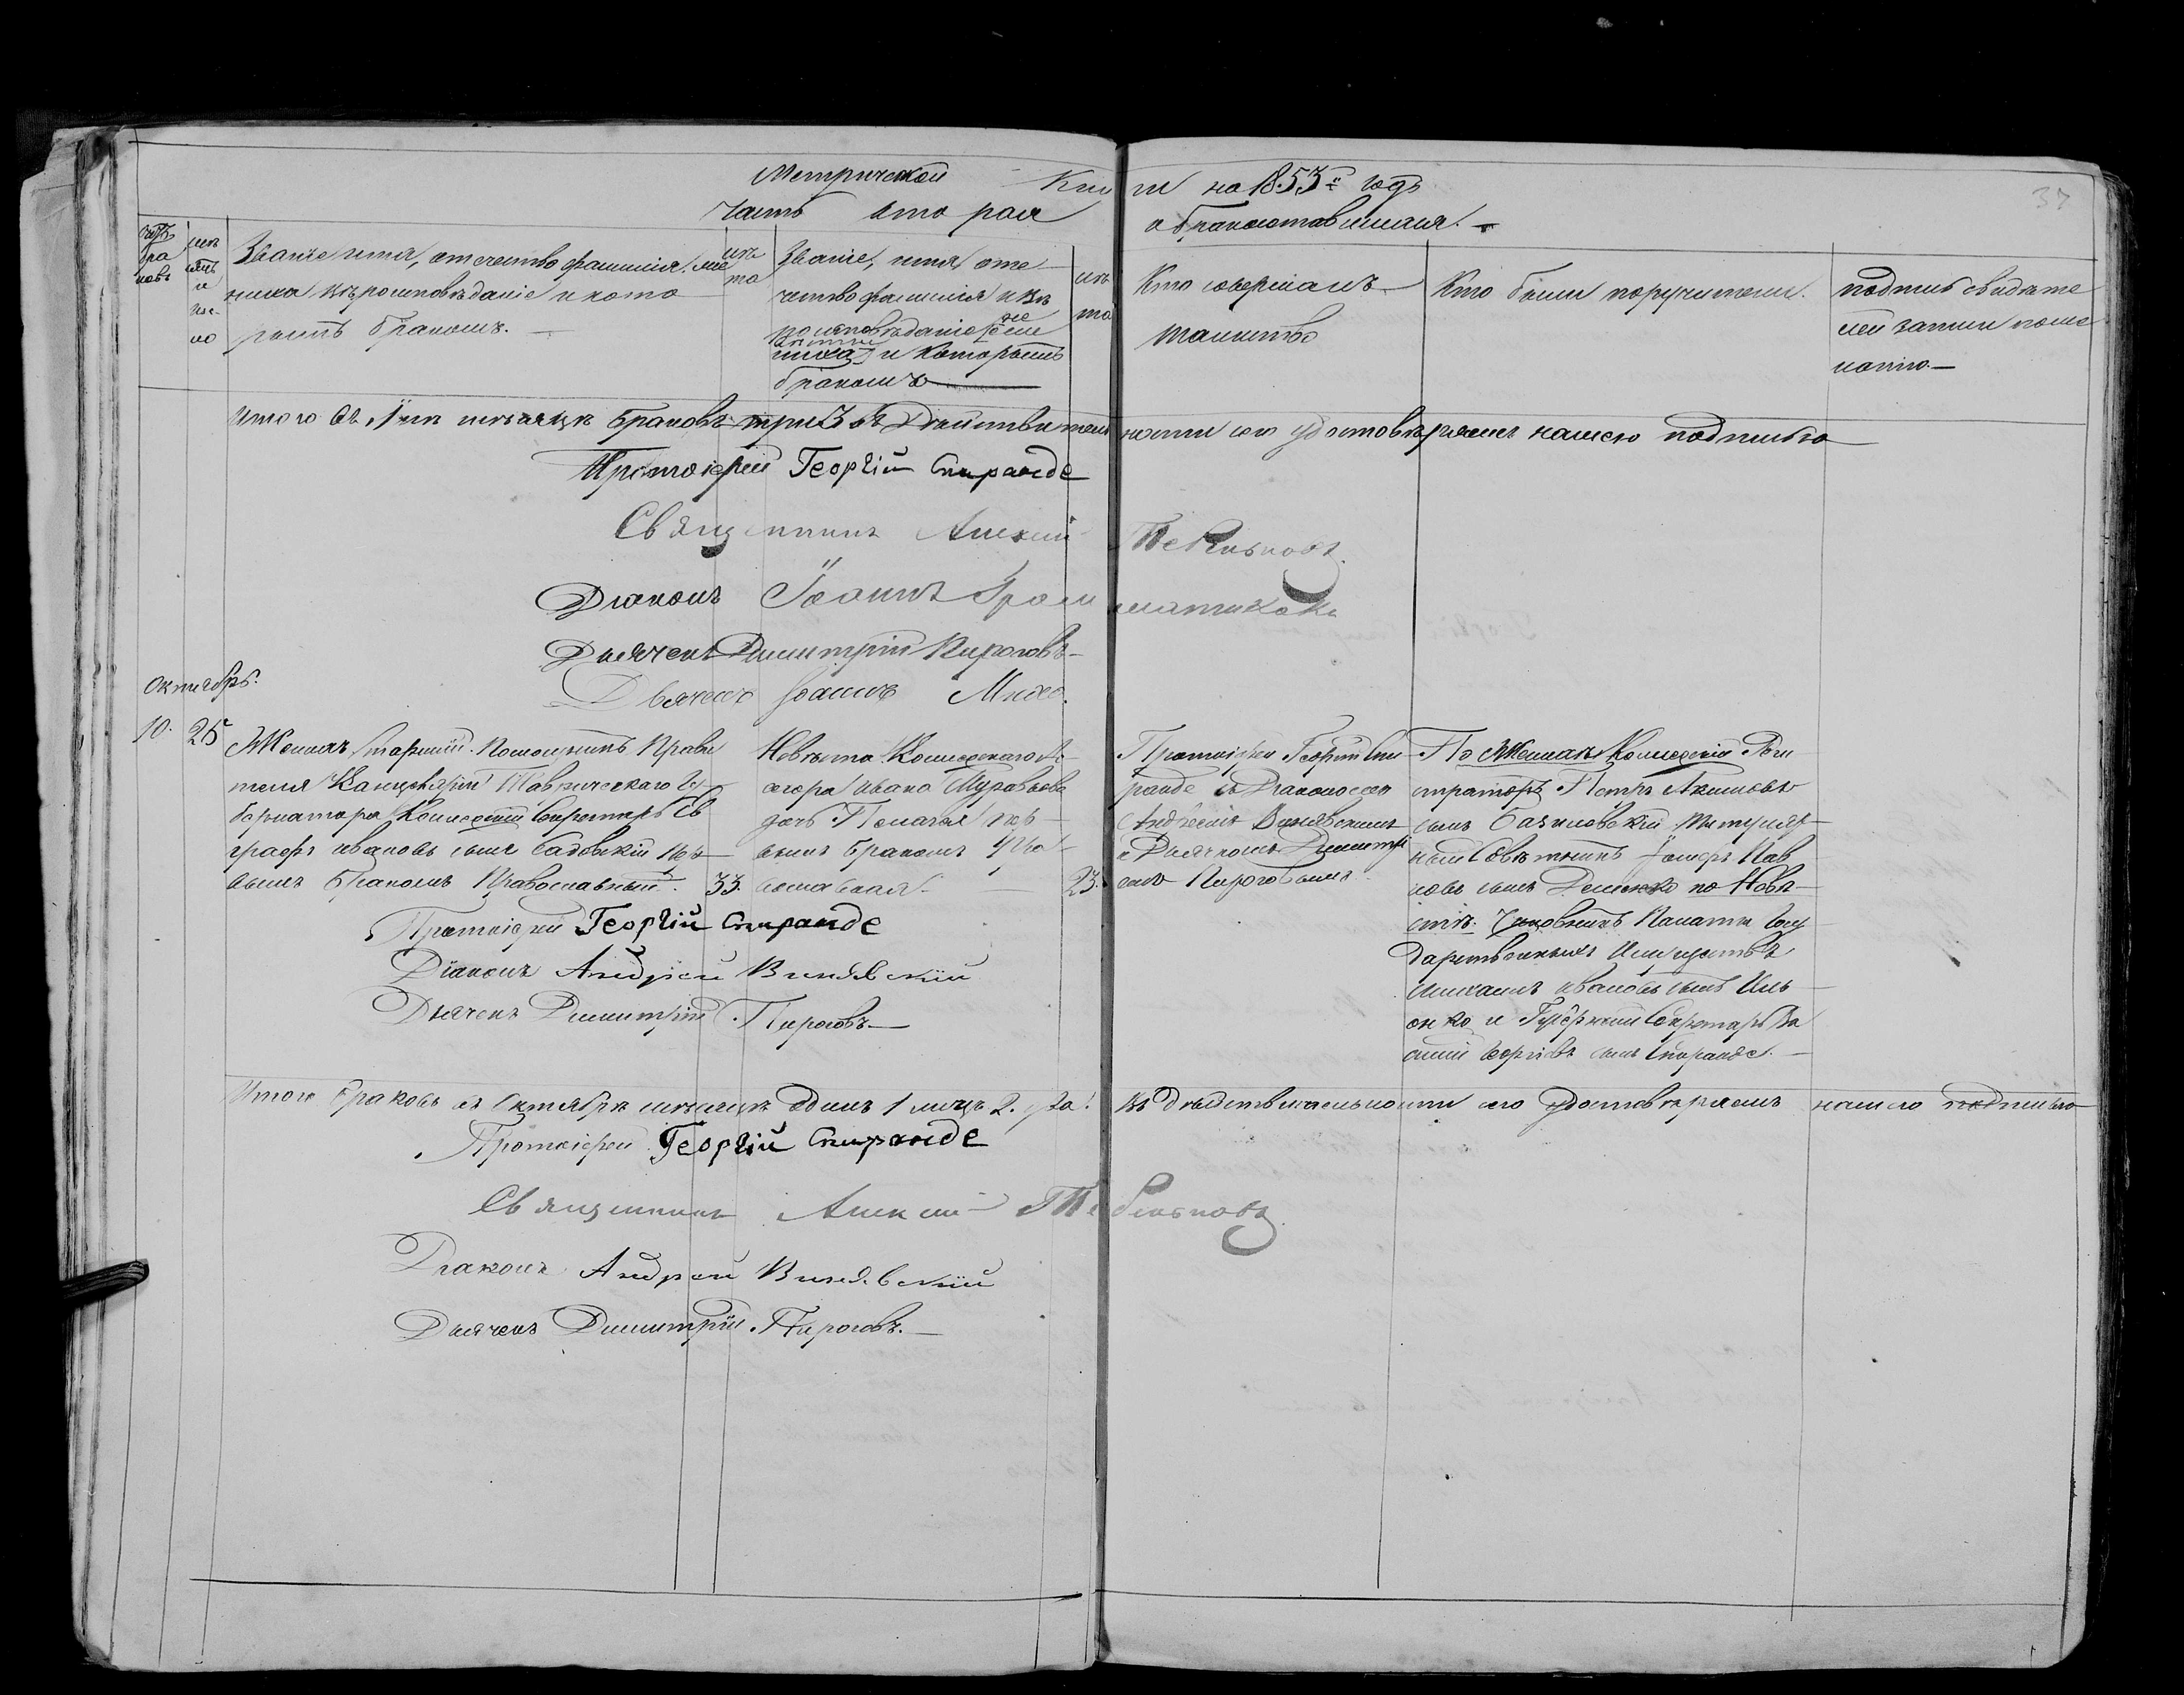 Метрической Кни ги на 1853й годъ
37
Часть вто рая о бракосочтавшихся.
счетъ браковъ
мѣсяцъ и число
Званіе имя, отечество фамилія, же
ниха вѣроисповѣданіе и кото
рымъ бракомъ.
лѣта
Званіе, имя, оте
чество фамилія и вѣ
роисповѣданіе
и которымъ
бракомъ
лѣта
Кто совершалъ
таинство
Кто были поручители.
подпись свидѣте
лей записи поже
ланію.
Итого въ мѣсяцѣ браковъ три 3 въ Дѣйствитель ности сего удостовѣряемъ нашею подписью
Протоіерей Георгій Спиранде
Священникъ Алексій
Діаконъ Іоаннъ Грам матикаки
Дьячекъ Димитрій Пироговъ
Дьячекъ Іоаннъ
Октябрь.
10. 25
Женихъ, Старшій Помощникъ Прави
теля Канцеляріи Таврическаго Гу
бернатора Коллежскій Секретарь Ев
графъ Ивановъ сынъ Садовскій пер
вымъ бракомъ Православный. 33.
Невѣста Коллежскаго Ас
сесора Ивана Муравьева
дочь Пелагея пер
вымъ бракомъ Пра
вославная. 23.
Протоіерей Георгій Спи
ранде съ Діакономъ
Андреемъ Винявскимъ
и Дьячкомъ Димитрі
емъ Пироговымъ
По Женихѣ Коллежскій Реги
страторъ Петръ Акимовъ
сынъ Базилевскій Титуляр
ный Совѣтникъ Іосифъ Пав
ловъ сынъ по Невѣ
стѣ: Чиновникъ Палаты Госу
дарственныхъ Имуществъ
Михаилъ Ивановъ сынъ Иль
енко и Губернскій Секретарь Ва
силій Георгіевъ сынъ Спиранде.
Протоіерей Георгій Спиранде
Діаконъ Андрей Винявскій
Дьячекъ Димитрій Пироговъ
Итого браковъ въ Октябрѣ мѣсяцѣ одинъ 1 лицъ 2. два. въ дѣйствительности сего удостовѣряемъ нашею подписью
Протоіерей Георгій Спиранде
Священникъ Алексій
Діаконъ Андрей Винявскій
Дьячекъ Димитрій Пироговъ.